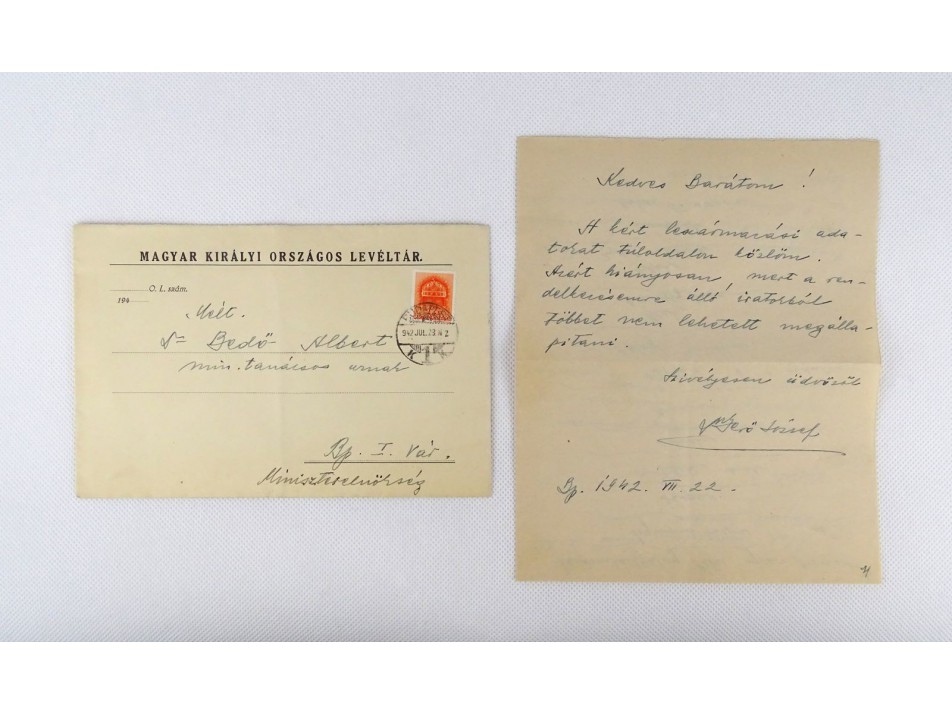 MAGYAR KIRÁLYI ORSZÁGOS LEVÉLTÁR.
O. L. szám.
194
Mélt.
Dr Bedő Albert
min. tanácsos urnak
Bp. I. Vár.
Miniszterelnökség
BUDAPEST
942 JUL. 23
Kedves Barátom !
A kért leszármazási ada-
tokat túloldalon közlöm.
Azért hiányosan, mert a ren-
delkezésemre álló iratokból
többet nem lehetett megálla-
pitani.
Szivélyesen üdvözöl
József
Bp. 1942. VII. 22.